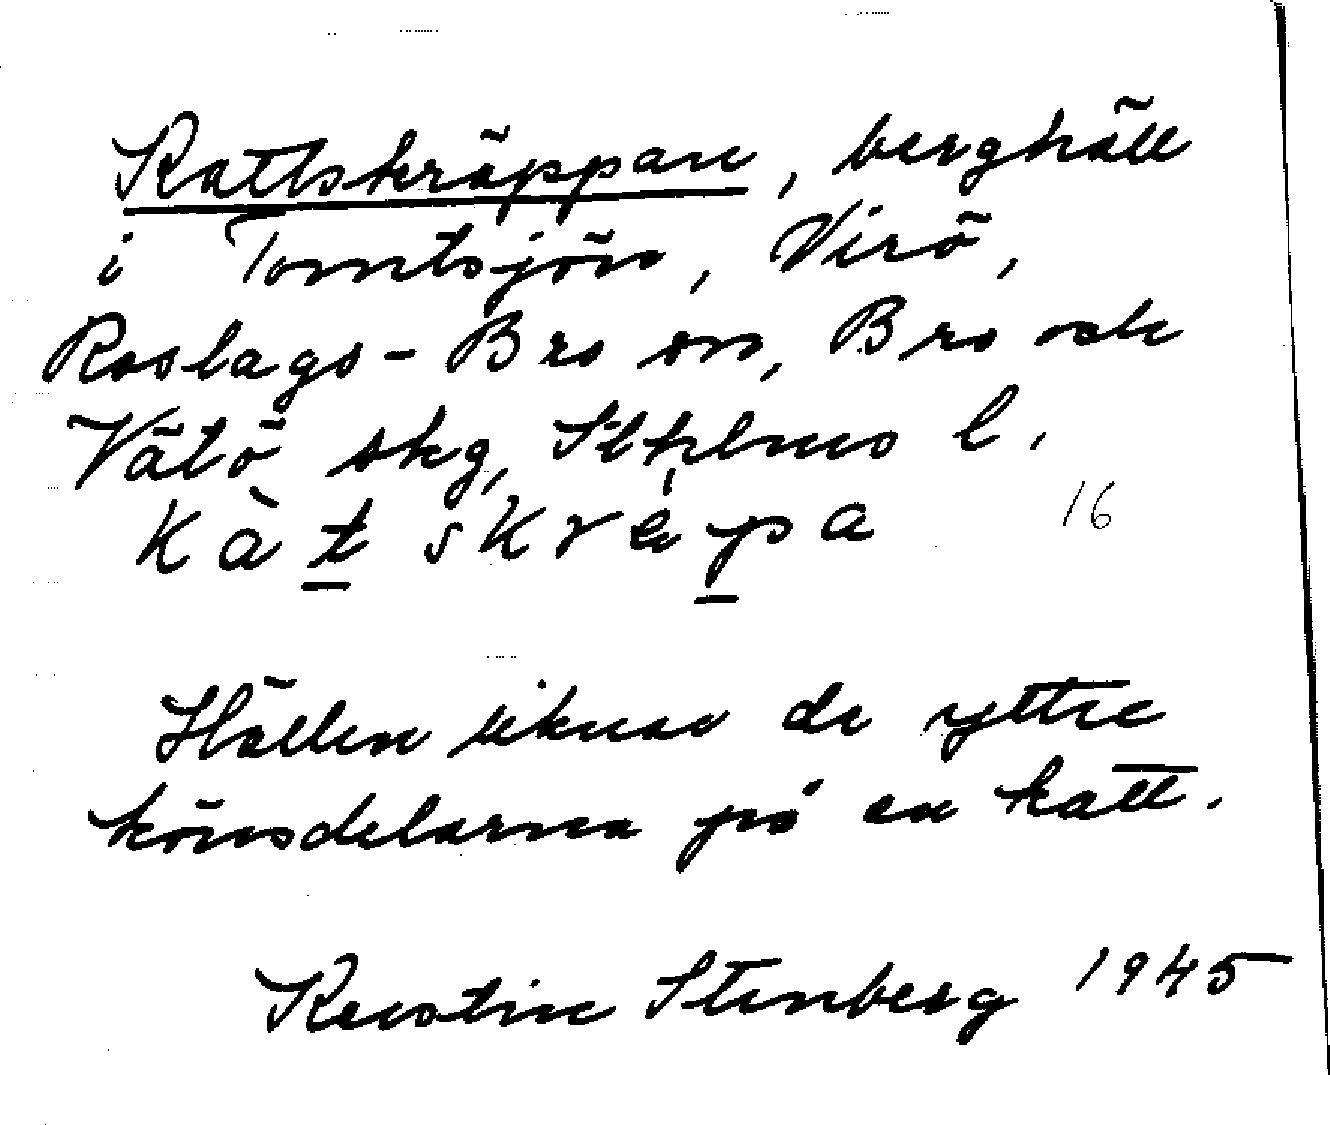 Kattskräppan, berghäll
i Tomtsjön, Virö,
Roslags-Bro sn, Bro och
Vätö skg, Sthlms l.
kàt skrępa 16
Hällen liknar de yttre
könsdelarna på en katt.
Kerstin Stenberg 1945